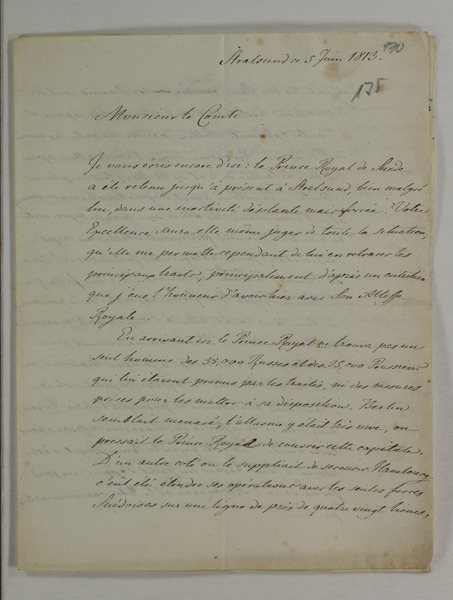 Stralsund ce 5 Juin 1813.
170
175
Monsieur le Comte
Je vous écris encore d'ici: le Prince Royal de Suède
a été retenu jusqu'à présent à Stralsund, bien malgré
lui, dans une inactivité désolante mais forcée. Votre
Excellence saura elle même juger de toute la situation,
qu'elle me permette cependant de lui en retracer les
principaux traits, principalement d'après un entretien
que j'eus l'honneur d'avoir hier avec Son Altesse
Royale.
En arrivant ici le Prince Royal ne trouva pas un
seul homme des 35,000 Russes et des 25,000 Prussiens
qui lui étoient promis par les traités, ni des mesures
prises pour les mettre à sa disposition. Berlin
semblait menacé, l'allarme y était très vive, on
pressait le Prince Royal de couvrir cette capitale.
D'un autre coté on le suppliait de secourir Hambourg,
c'eut été étendre ses opérations avec les seules forces
Suédoises sur une ligne de près de quatre vingt lieues,